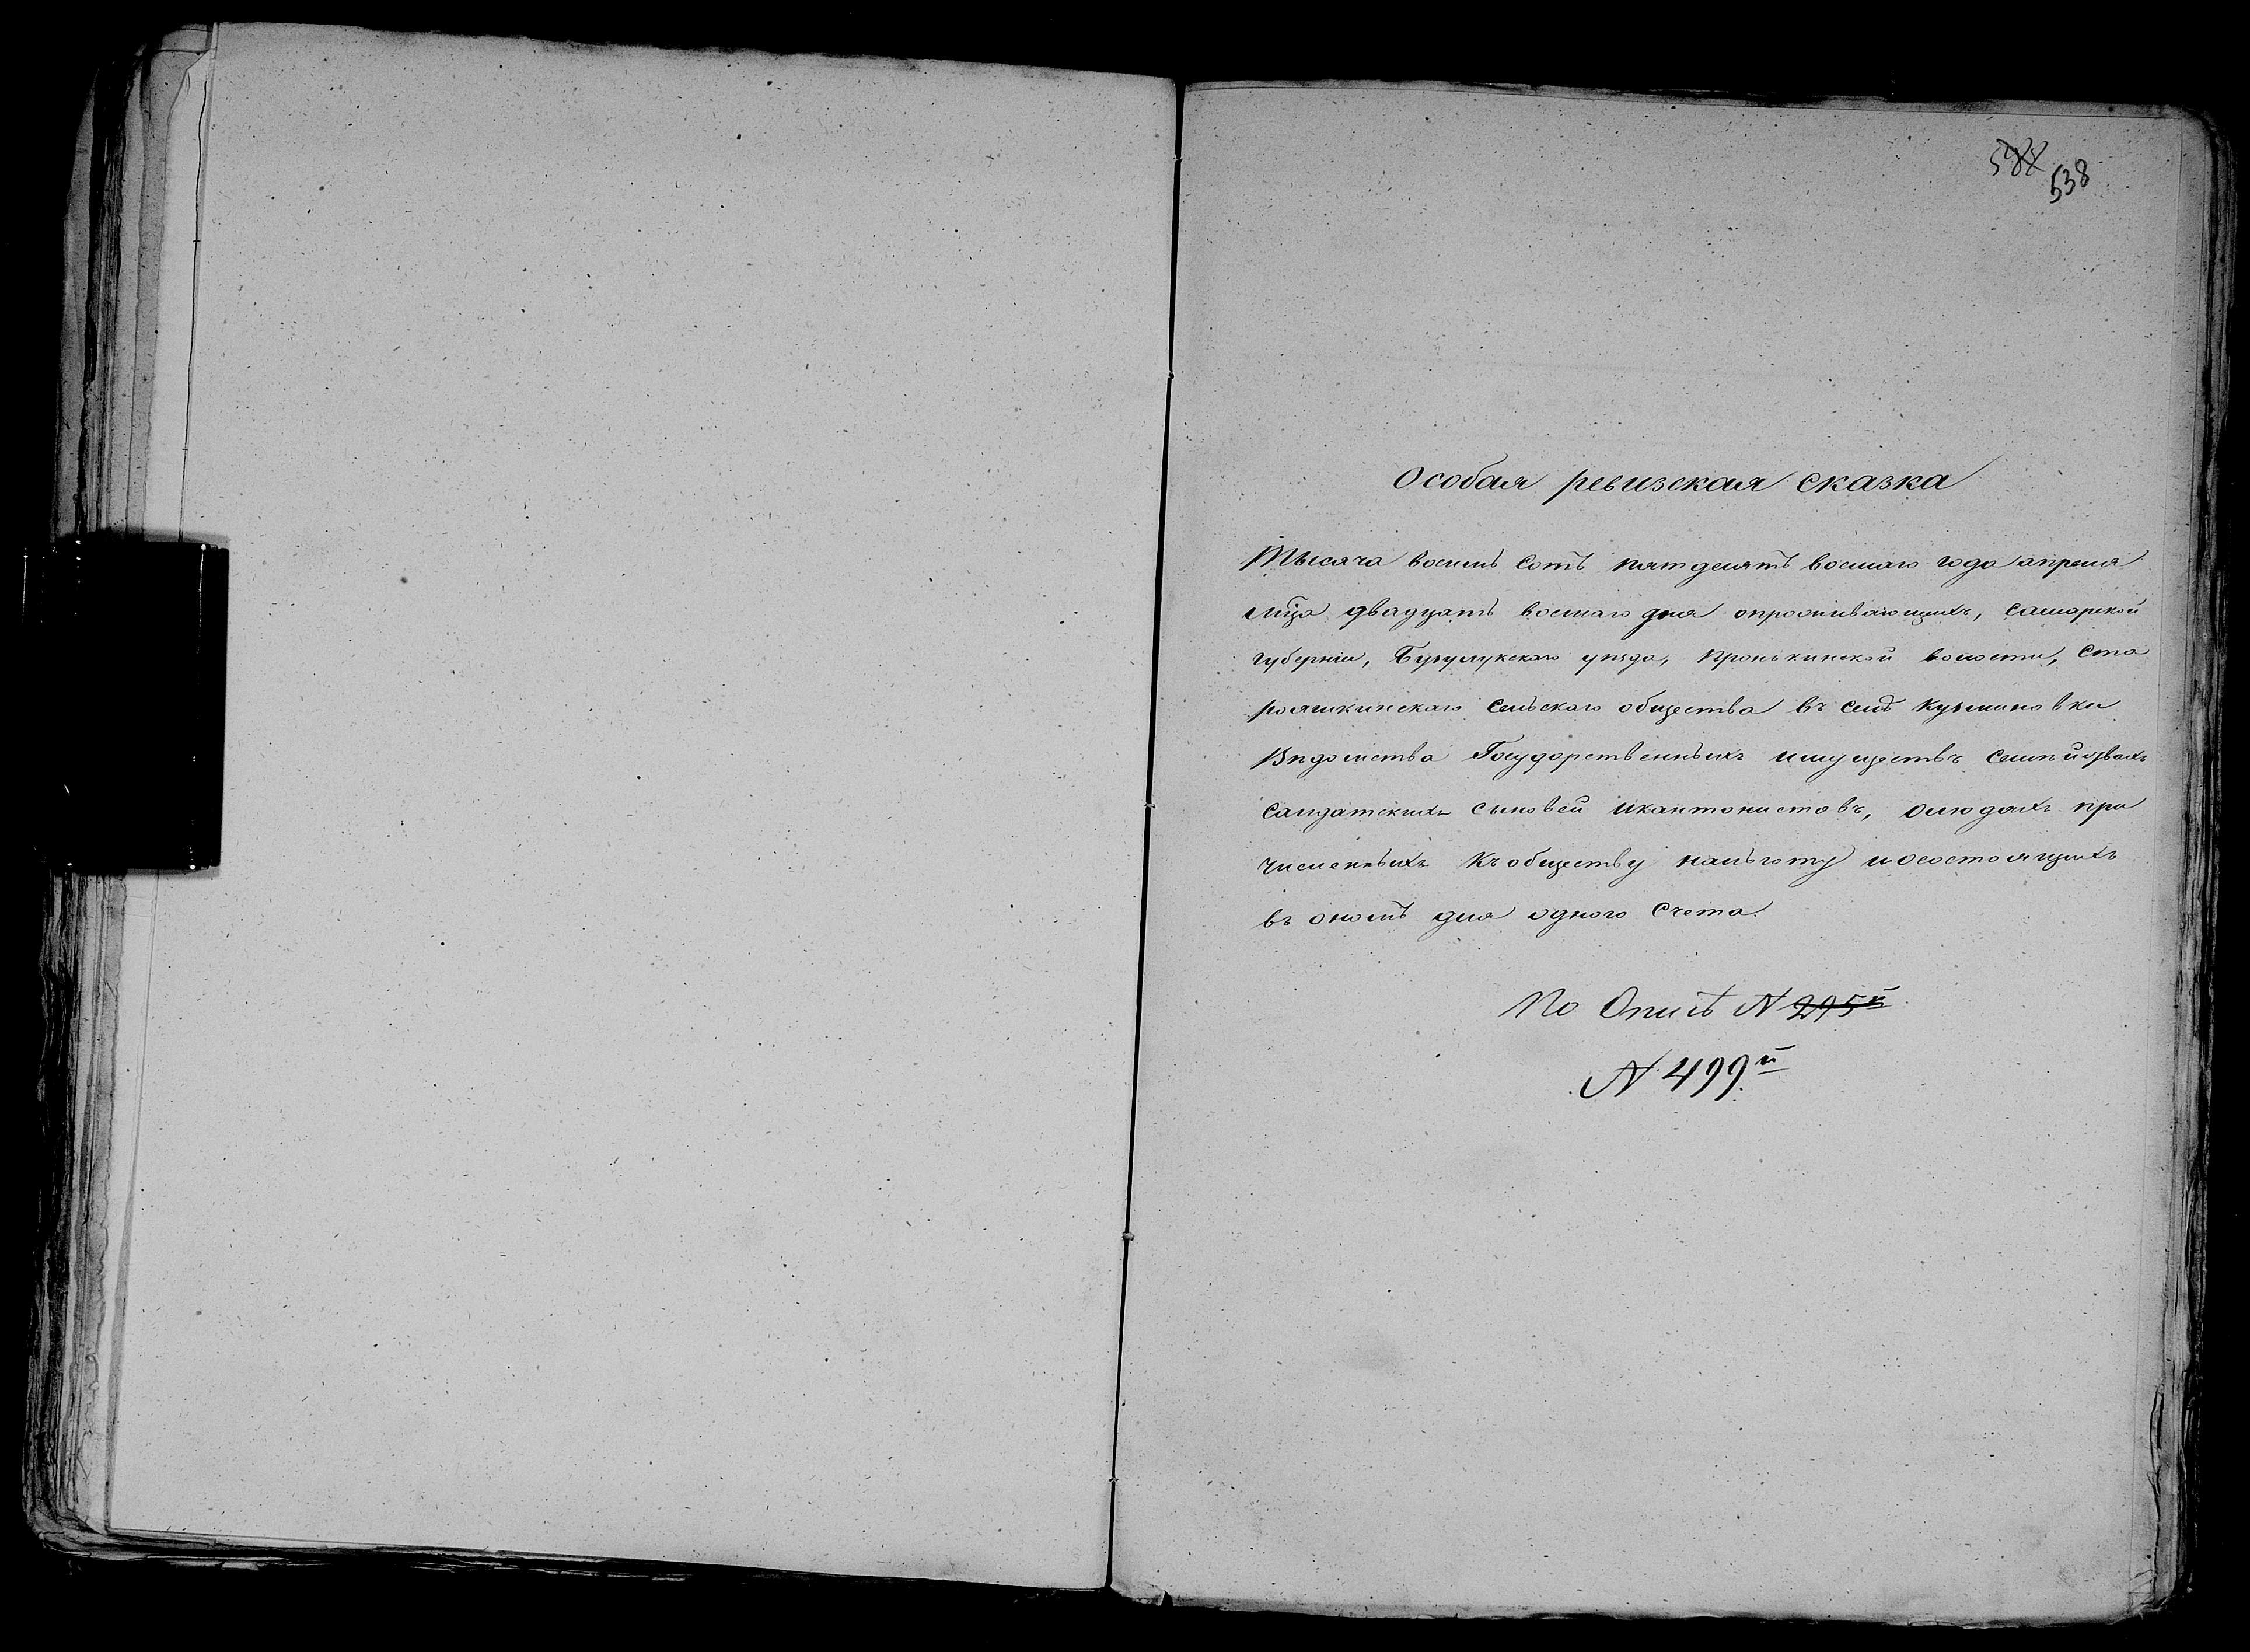 538
Особая ревизская сказка
Тысяча восемь сотъ пятдесятъ восмаго года апреля
мца двадцать восмаго дня опроживающихъ, самарской
губернiи, Бузулукскаго уезда, Пронькинской волости, Ста
рояшкинскаго сельскаго общества въ селѣ Кузминовки
Ведомства Государственныхъ имуществъ
салдатскихъ сыновей икантонистовъ, олюдяхъ при
численныхъ Къобществу нальготу иосостоящихъ
въ ономъ для одного счета.
По Описѣ N 295й
N 499й